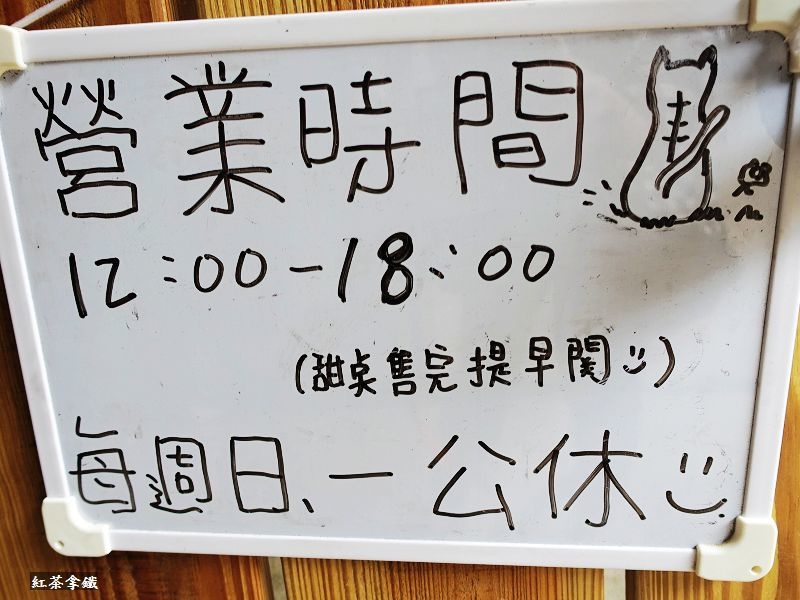 營業時間
12:00-18:00
(甜桌售完提早關)
每週日、一公休
紅茶拿鐵